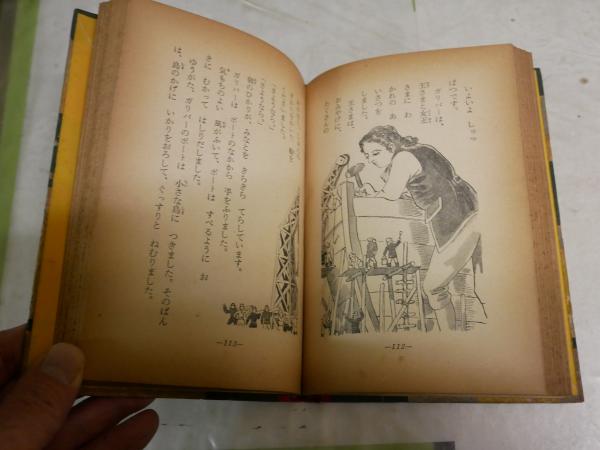 いよいよ しゅっ
ぱつです。
ガリバーは、
王さまと女王
さまに わ
かれの あ
いさつを
しました。
王さまは、
おみやげに、
たくさんの
—112—
「さようなら。」
「さようなら。」
朝のひかりが、みなとを きらきら てらしています。
ガリバーは ボートのなかから 手をふりました。
気もちのよい 風がふいて、ボートは すべるように お
きに むかって はしりだしました。
ゆうがた、ガリバーのボートは 小さな島に つきました。そのばん
は、島のかげに いかりをおろして、ぐっすりと ねむりました。
—113—